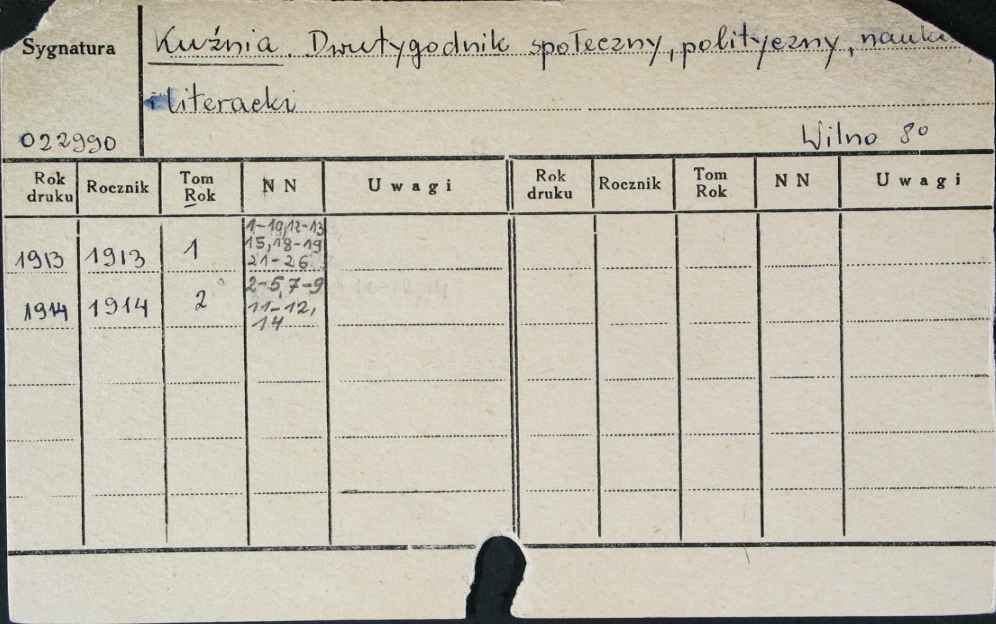 Sygnatura
Kuźnia. Dwutygodnik społeczny, polityczny, nauko
i literacki
022990
Wilno 8°
Rok druku Rocznik Tom Rok N N Uwagi Rok druku Rocznik Tom Rok N N Uwagi
1913 1913 1 1-10, 12-13
15, 18-19
21-26
1914 1914 2 2-5, 7-9
11-12,
14